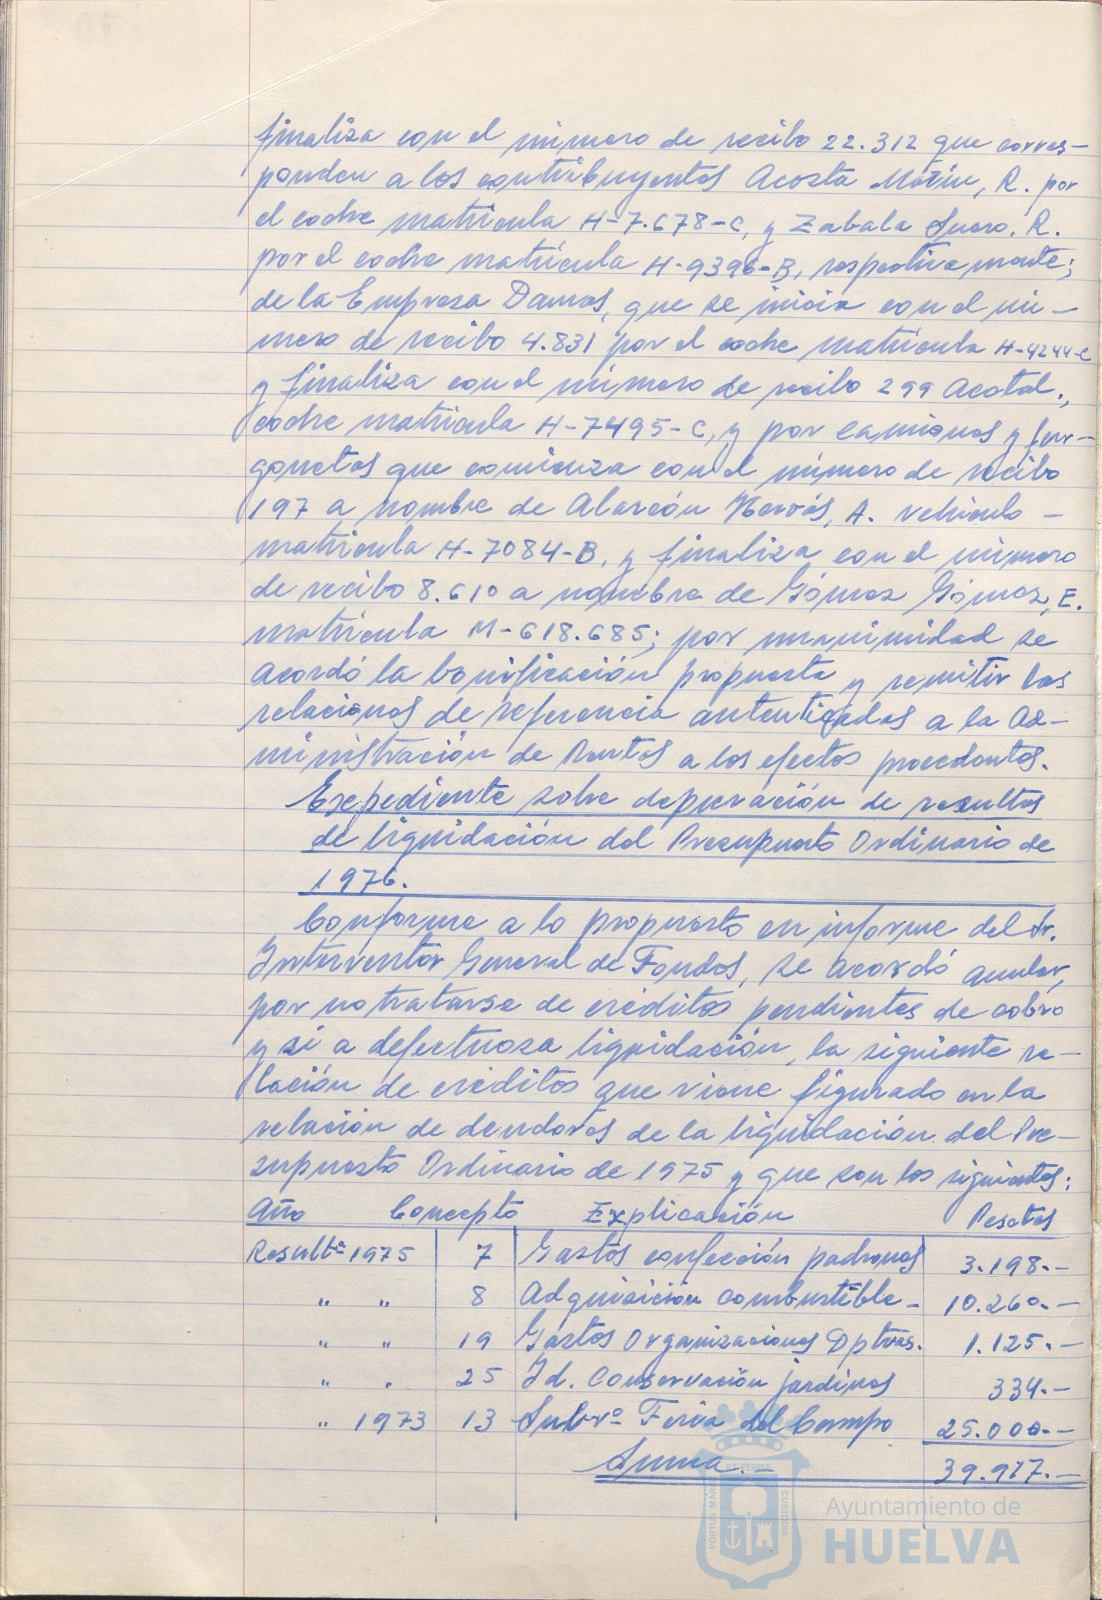 finaliza con el número de recibo 22.312 que corres-
ponden a los contribuyentes Acosta Marín, R. por
el coche matrícula H-7.678-C, y Zabala Suero, R.
por el coche matrícula H-9396-B, respectivamente;
de la Empresa Damas, que se inicia con el nú-
mero de recibo 4.831 por el coche matrícula H-4244-C
y finaliza con el número de recibo 299 Acotal.,
coche matrícula H-7495-C, y por camiones y fur-
gonetas que comienza con el número de recibo
197 a nombre de Alarcón Hervás, A. vehículo -
matrícula H-7084-B, y finaliza con el número
de recibo 8.610 a nombre de Gómez Gómez, E.
matrícula M-618.685; por unanimidad se
acordó la bonificación propuesta y remitir las
relaciones de referencia autenticadas a la Ad-
ministración de Rentas a los efectos procedentes.
Expediente sobre depuración de resultas
de liquidación del Presupuesto Ordinario de
1976.
Conforme a lo propuesto en informe del Sr.
Interventor General de Fondos, se acordó anular,
por no tratarse de créditos pendientes de cobro
y si a defectuosa liquidación, la siguiente re-
lación de créditos que viene figurado en la
relación de deudores de la liquidación del Pre-
supuesto Ordinario de 1975 y que son los siguientes:
Año Concepto Explicación Pesetas
Resultª 1975 7 Gastos confección padrones 3.198.-
" " 8 Adquisición combustible - 10.260.-
" " 19 Gastos Organizaciones Dptvas. 1.125.-
" " 25 Id. Conservación jardines 334.-
" 1973 13 Subvº Feria del Campo 25.000.-
Suma.- 39.917.-
PORTUS MARIS
ET TERRE
CUSTODIA
Ayuntamiento de
HUELVA